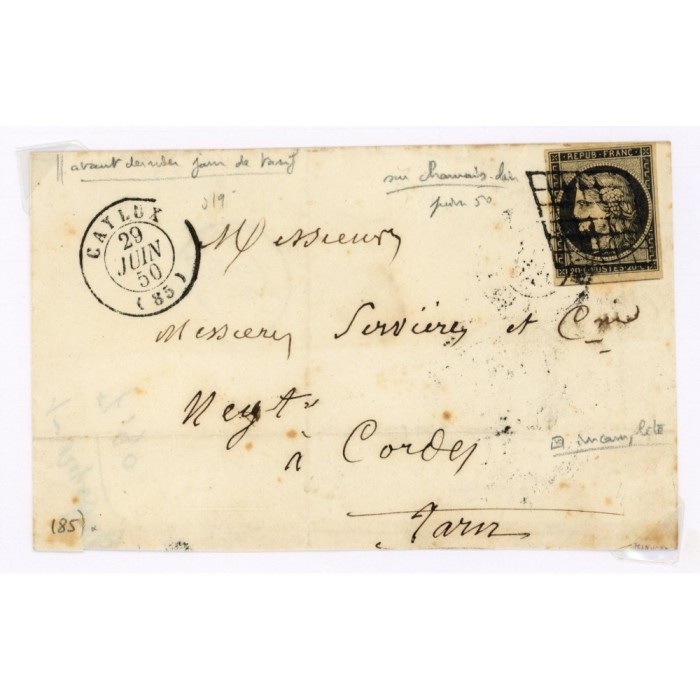 avant dernier jour de tarif
sur chamois clair
juin 50
CAYLUX
29
JUIN
50
(85)
REPUB. FRANC.
20c. POSTES. 20c.
Messieurs
Messieres Servières et Cnie
Negts
à Cordes
Tarn
(85).